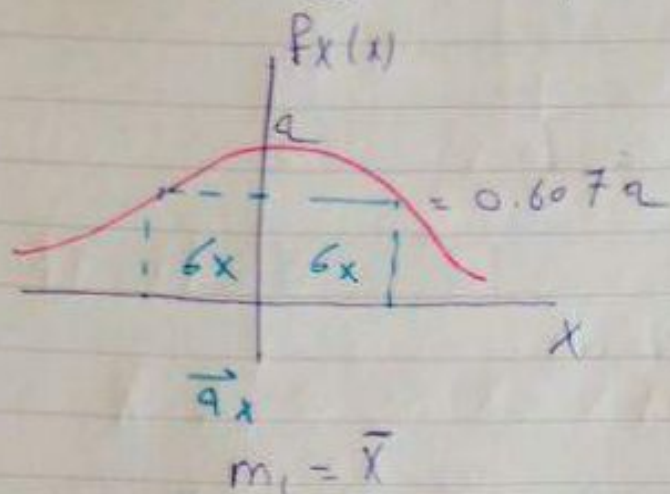 fx(x)
a
= 0.607 a
σx σx
x
a⃗x
m₁ = X̄